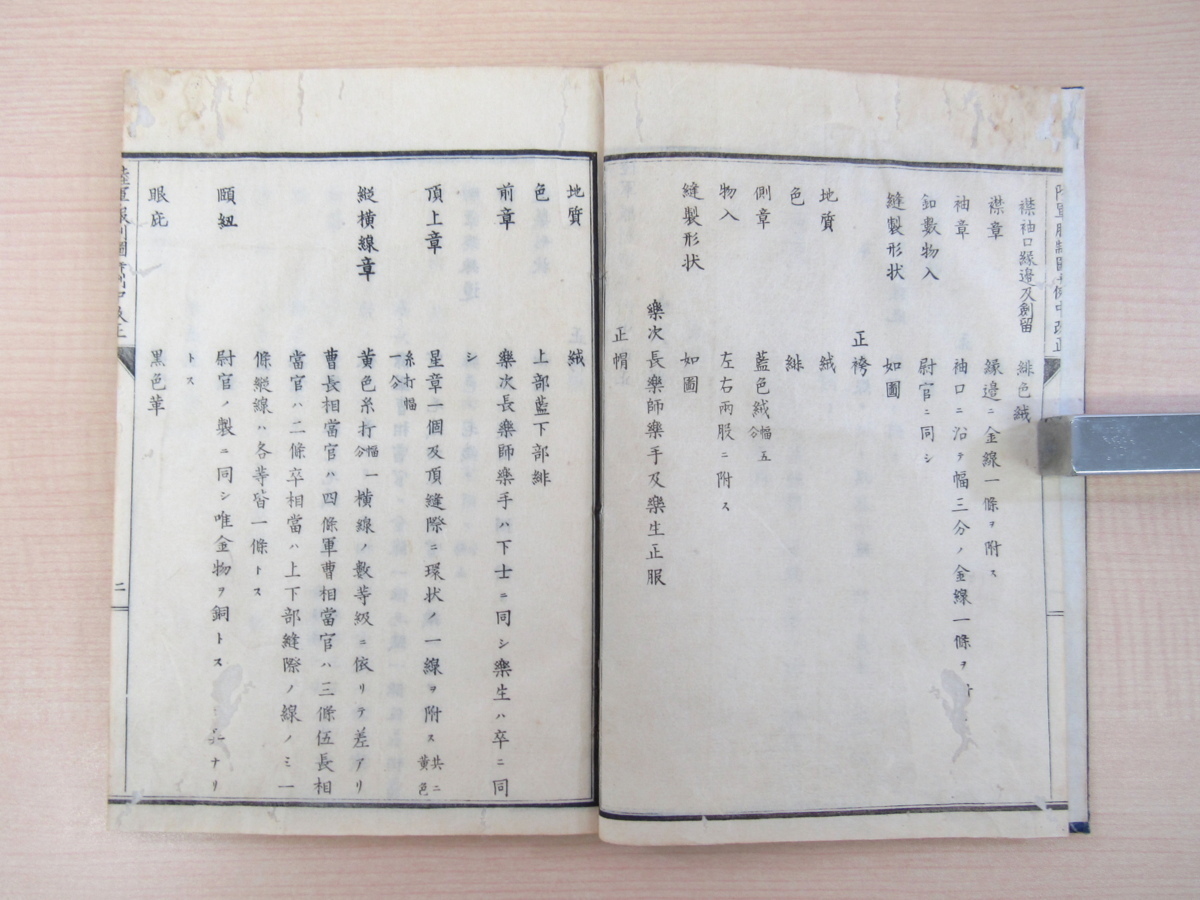 襟袖口縁邊及釰留 緋色絨
襟章 縁邊ニ金線一條ヲ附ス
袖章 袖口ニ沿テ幅三分ノ金線一條ヲ
釦數物入 尉官ニ同シ
縫製形状 如圖
正袴
地質 絨
色 緋
側章 藍色絨幅五分
物入 左右兩服ニ附ス
縫製形状 如圖
樂次長樂師樂手及樂生正服
正帽
地質 絨
色 上部藍下部緋
前章 樂次長樂師樂手ハ下士ニ同シ樂生ハ卒ニ同
シ
頂上章 星章一個及頂縫際ニ環状ノ一線ヲ附ス共ニ黄色
糸打幅一分
縦横線章 黄色糸打幅一分横線ノ數等級ニ依リテ差アリ
曹長相當官ハ四條軍曹相當官ハ三條伍長相
當官ハ二條卒相當ハ上下部縫際ノ線ノミ一
條縦線ハ各等皆一條トス
頤紐 尉官ノ製ニ同シ唯金物ヲ銅トス ナリ
トス
眼庇 黒色革
二